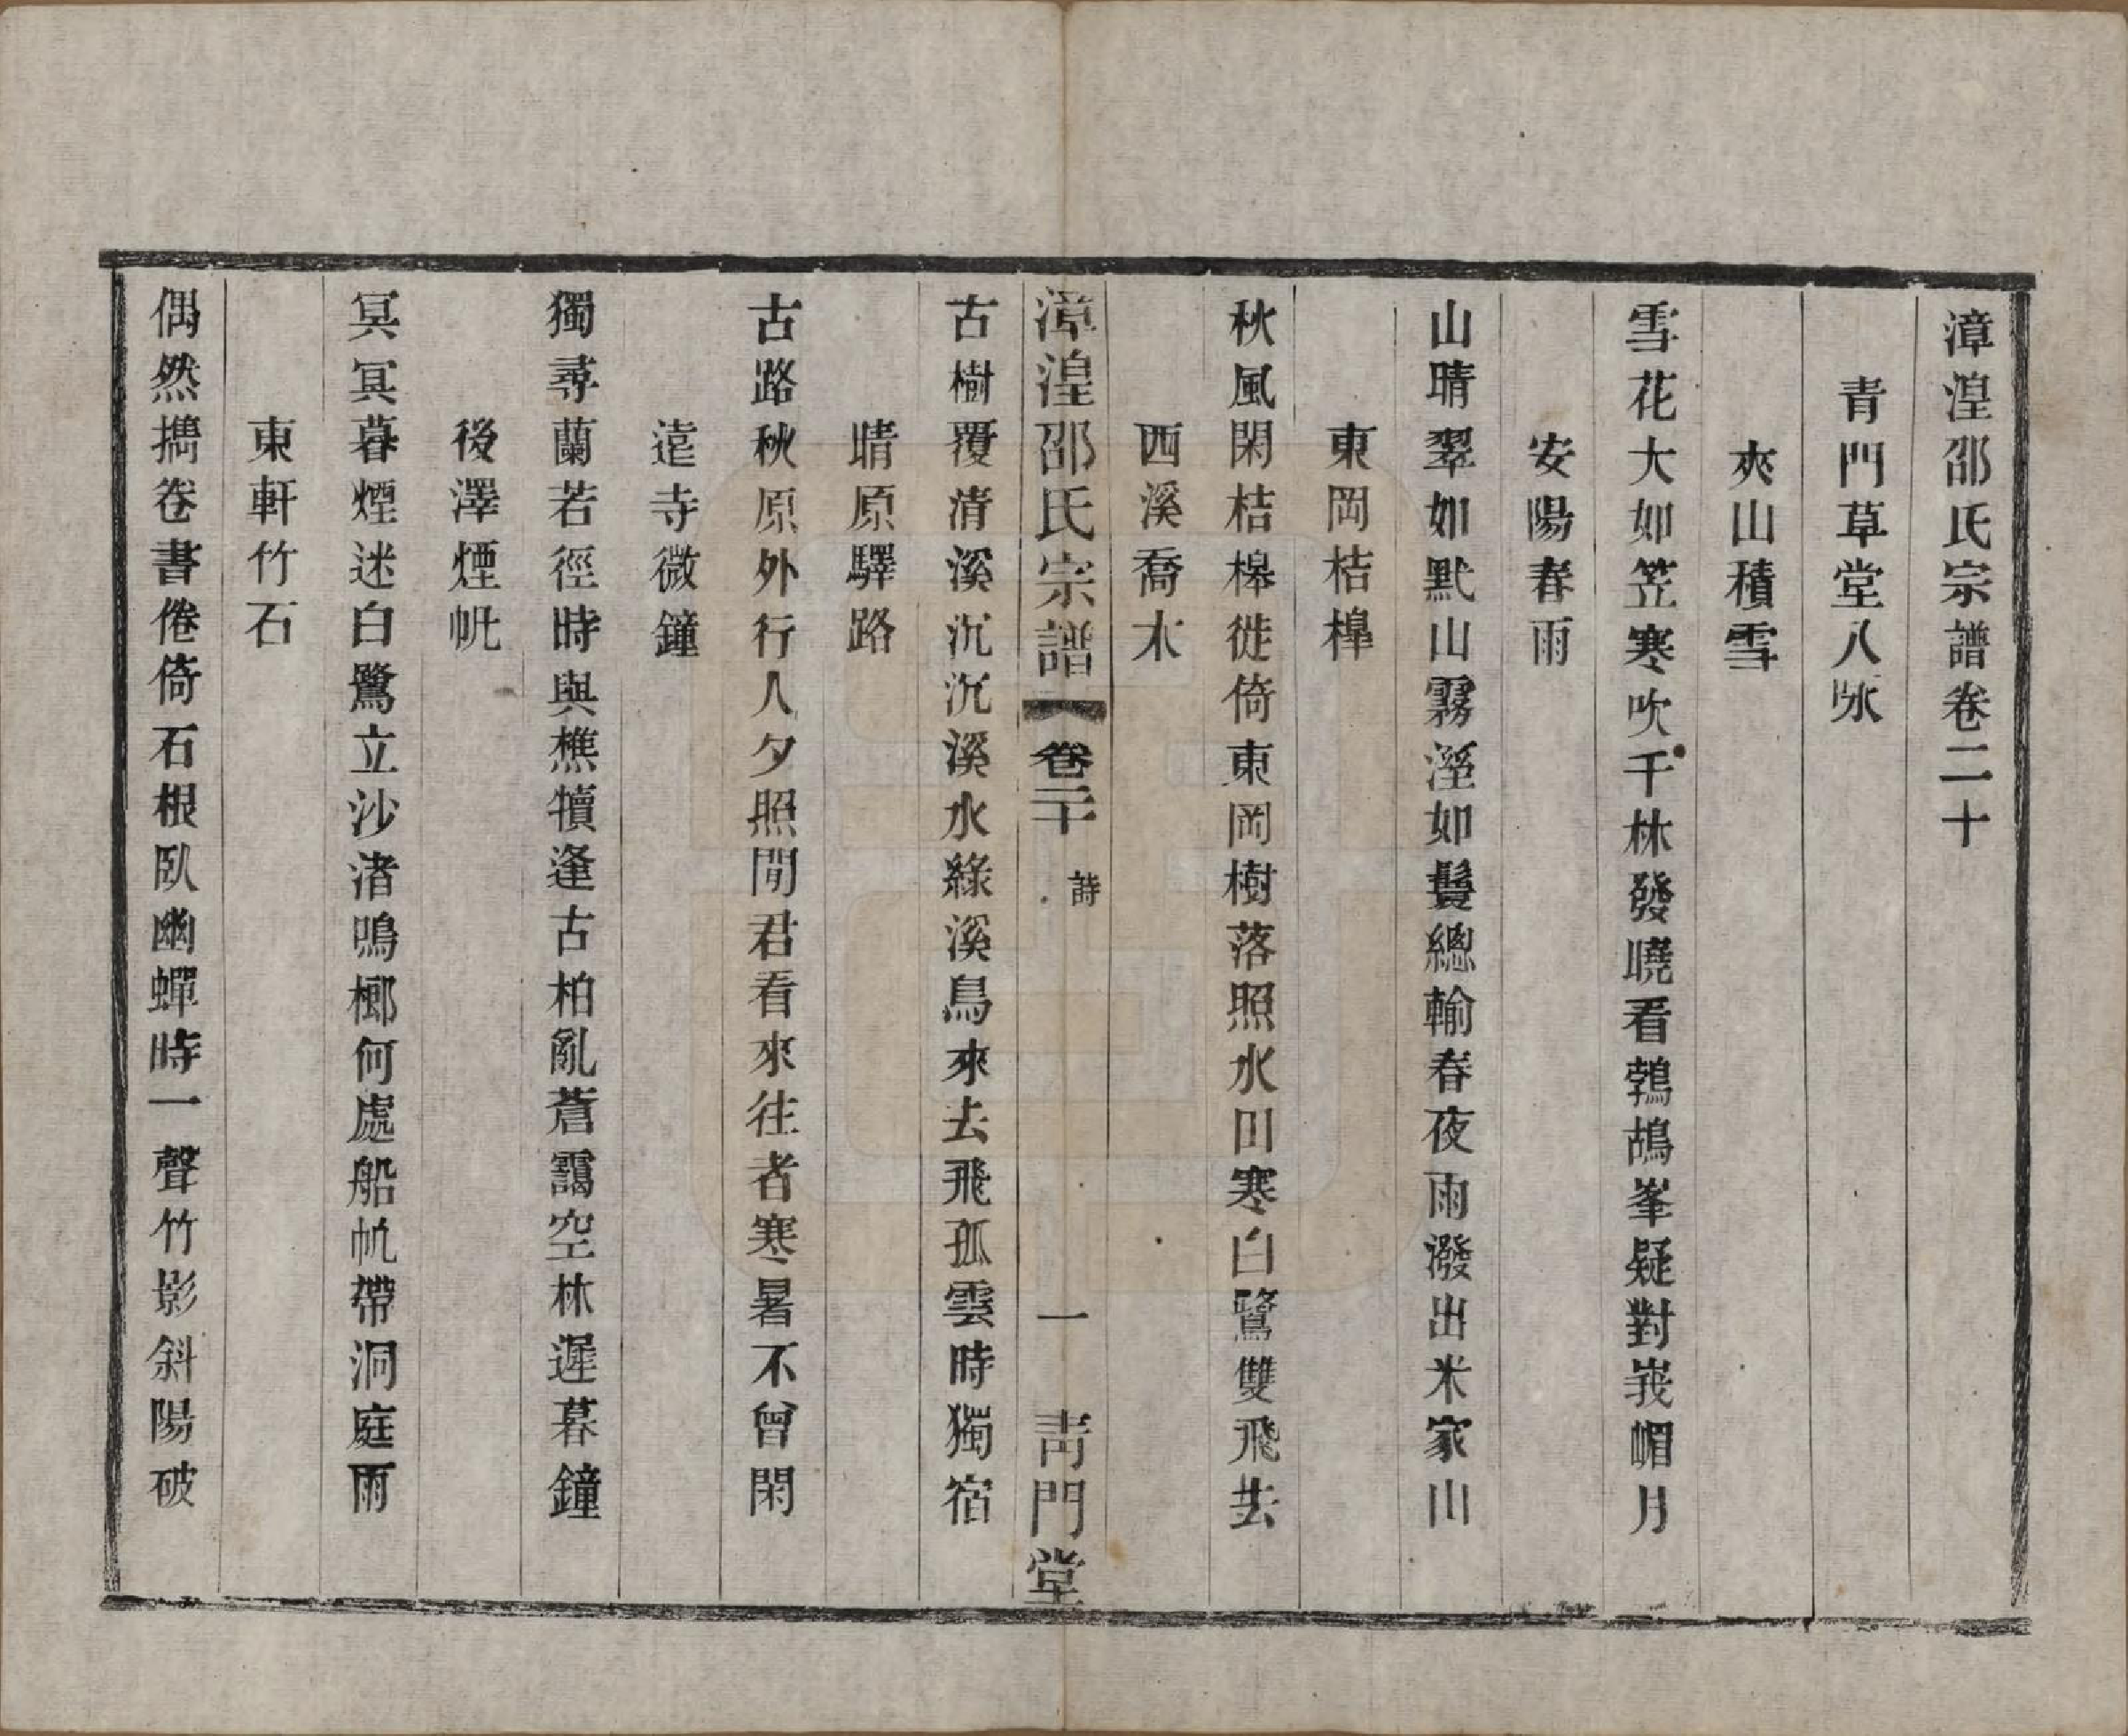 漳湟邵氏宗譜卷二十
青門草堂八咏
夾山積雪
雪花大如笠寒吹千林發曉看鵓鴣峯疑對峩嵋月
安陽春雨
山晴翠如㱀山霧溼如鬟總輸春夜雨潑出米家山
東岡桔槔
秋風閑桔槔徙倚東岡樹落照水田寒白鷺雙飛去
西溪喬木
漳湟邵氏宗譜 卷二十 詩 一 靑門堂
古樹覆清溪沉沉溪水綠溪鳥來去飛孤雲時獨宿
晴原驛路
古路秋原外行人夕照間君看來往者寒暑不曾閑
遠寺微鐘
獨尋蘭若徑時與樵犢逢古柏亂蒼靄空林遲暮鐘
後澤煙帆
冥冥暮煙迷白鷺立沙渚鳴榔何處船帆帶洞庭雨
東軒竹石
偶然攜卷書倦倚石根臥幽蟬時一聲竹影斜陽破